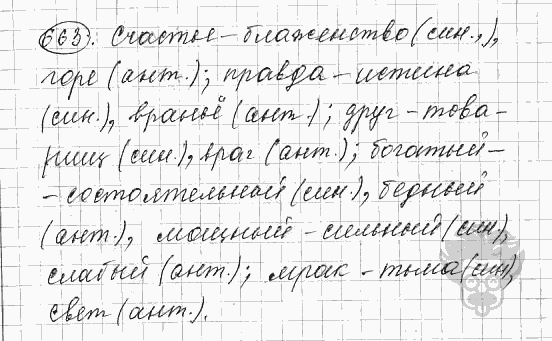 663. Счастье – блаженство (син.,),
горе (ант.); правда – истина
(син.), враньё (ант.); друг – това-
рищ (син.), враг (ант.); богатый –
– состоятельный (син.), бедный
(ант.), мощный – сильный (син.),
слабый (ант.); мрак – тьма (син),
свет (ант.).